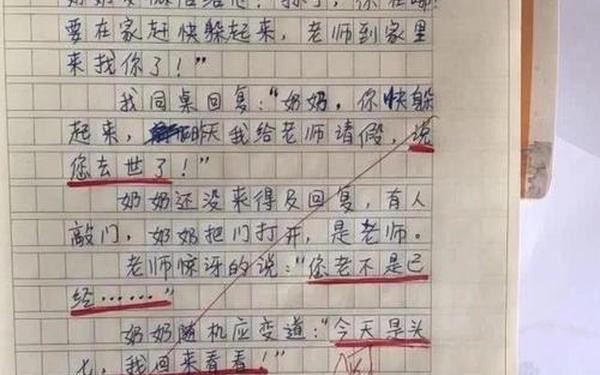 要在家赶快躲起来，老师到家里
来找你了！”
我同桌回复：“奶奶，你快躲
起来，昨天我给老师请假，说
您去世了！”
奶奶还没来得及回复，有人
敲门，奶奶把门打开，是老师。
老师惊讶的说：“您老不是已
经……”
奶奶随机应变道：“今天是头
七，我回来看看！”